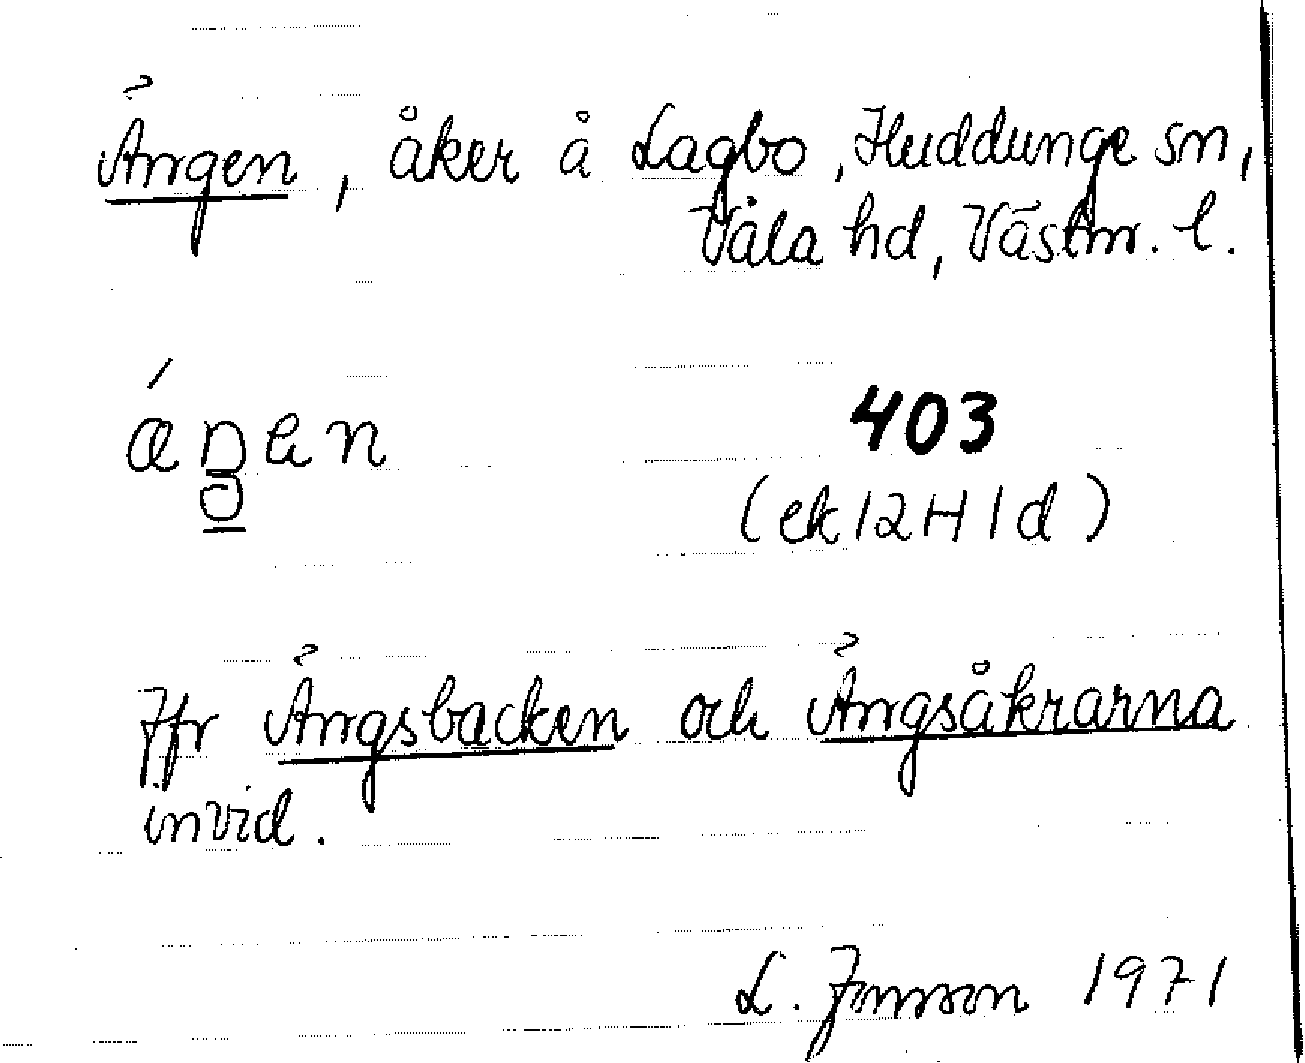 Ängen, åker å Lagbo, Huddunge sn,
Våla hd, Västm. l.
403
(ek 12H1d)
Jfr Ängsbacken och Ängsåkrarna
invid.
L. Jonsson 1971